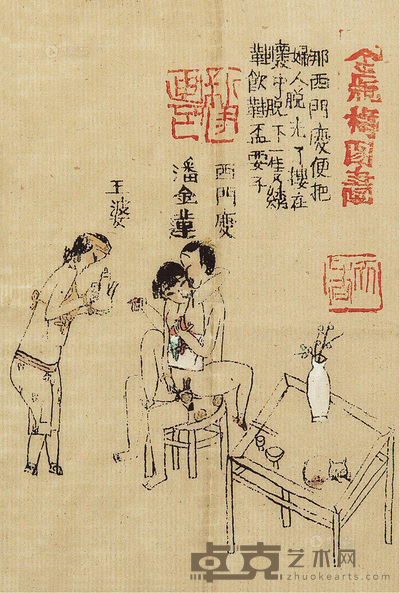 金瓶梅图畫
那西門慶便把
婦人脫光了摟在
懷中脫下一隻綉
鞋飲鞋盃耍子
西門慶
潘金蓮
王婆
卓克艺术网
www.zhuokearts.com